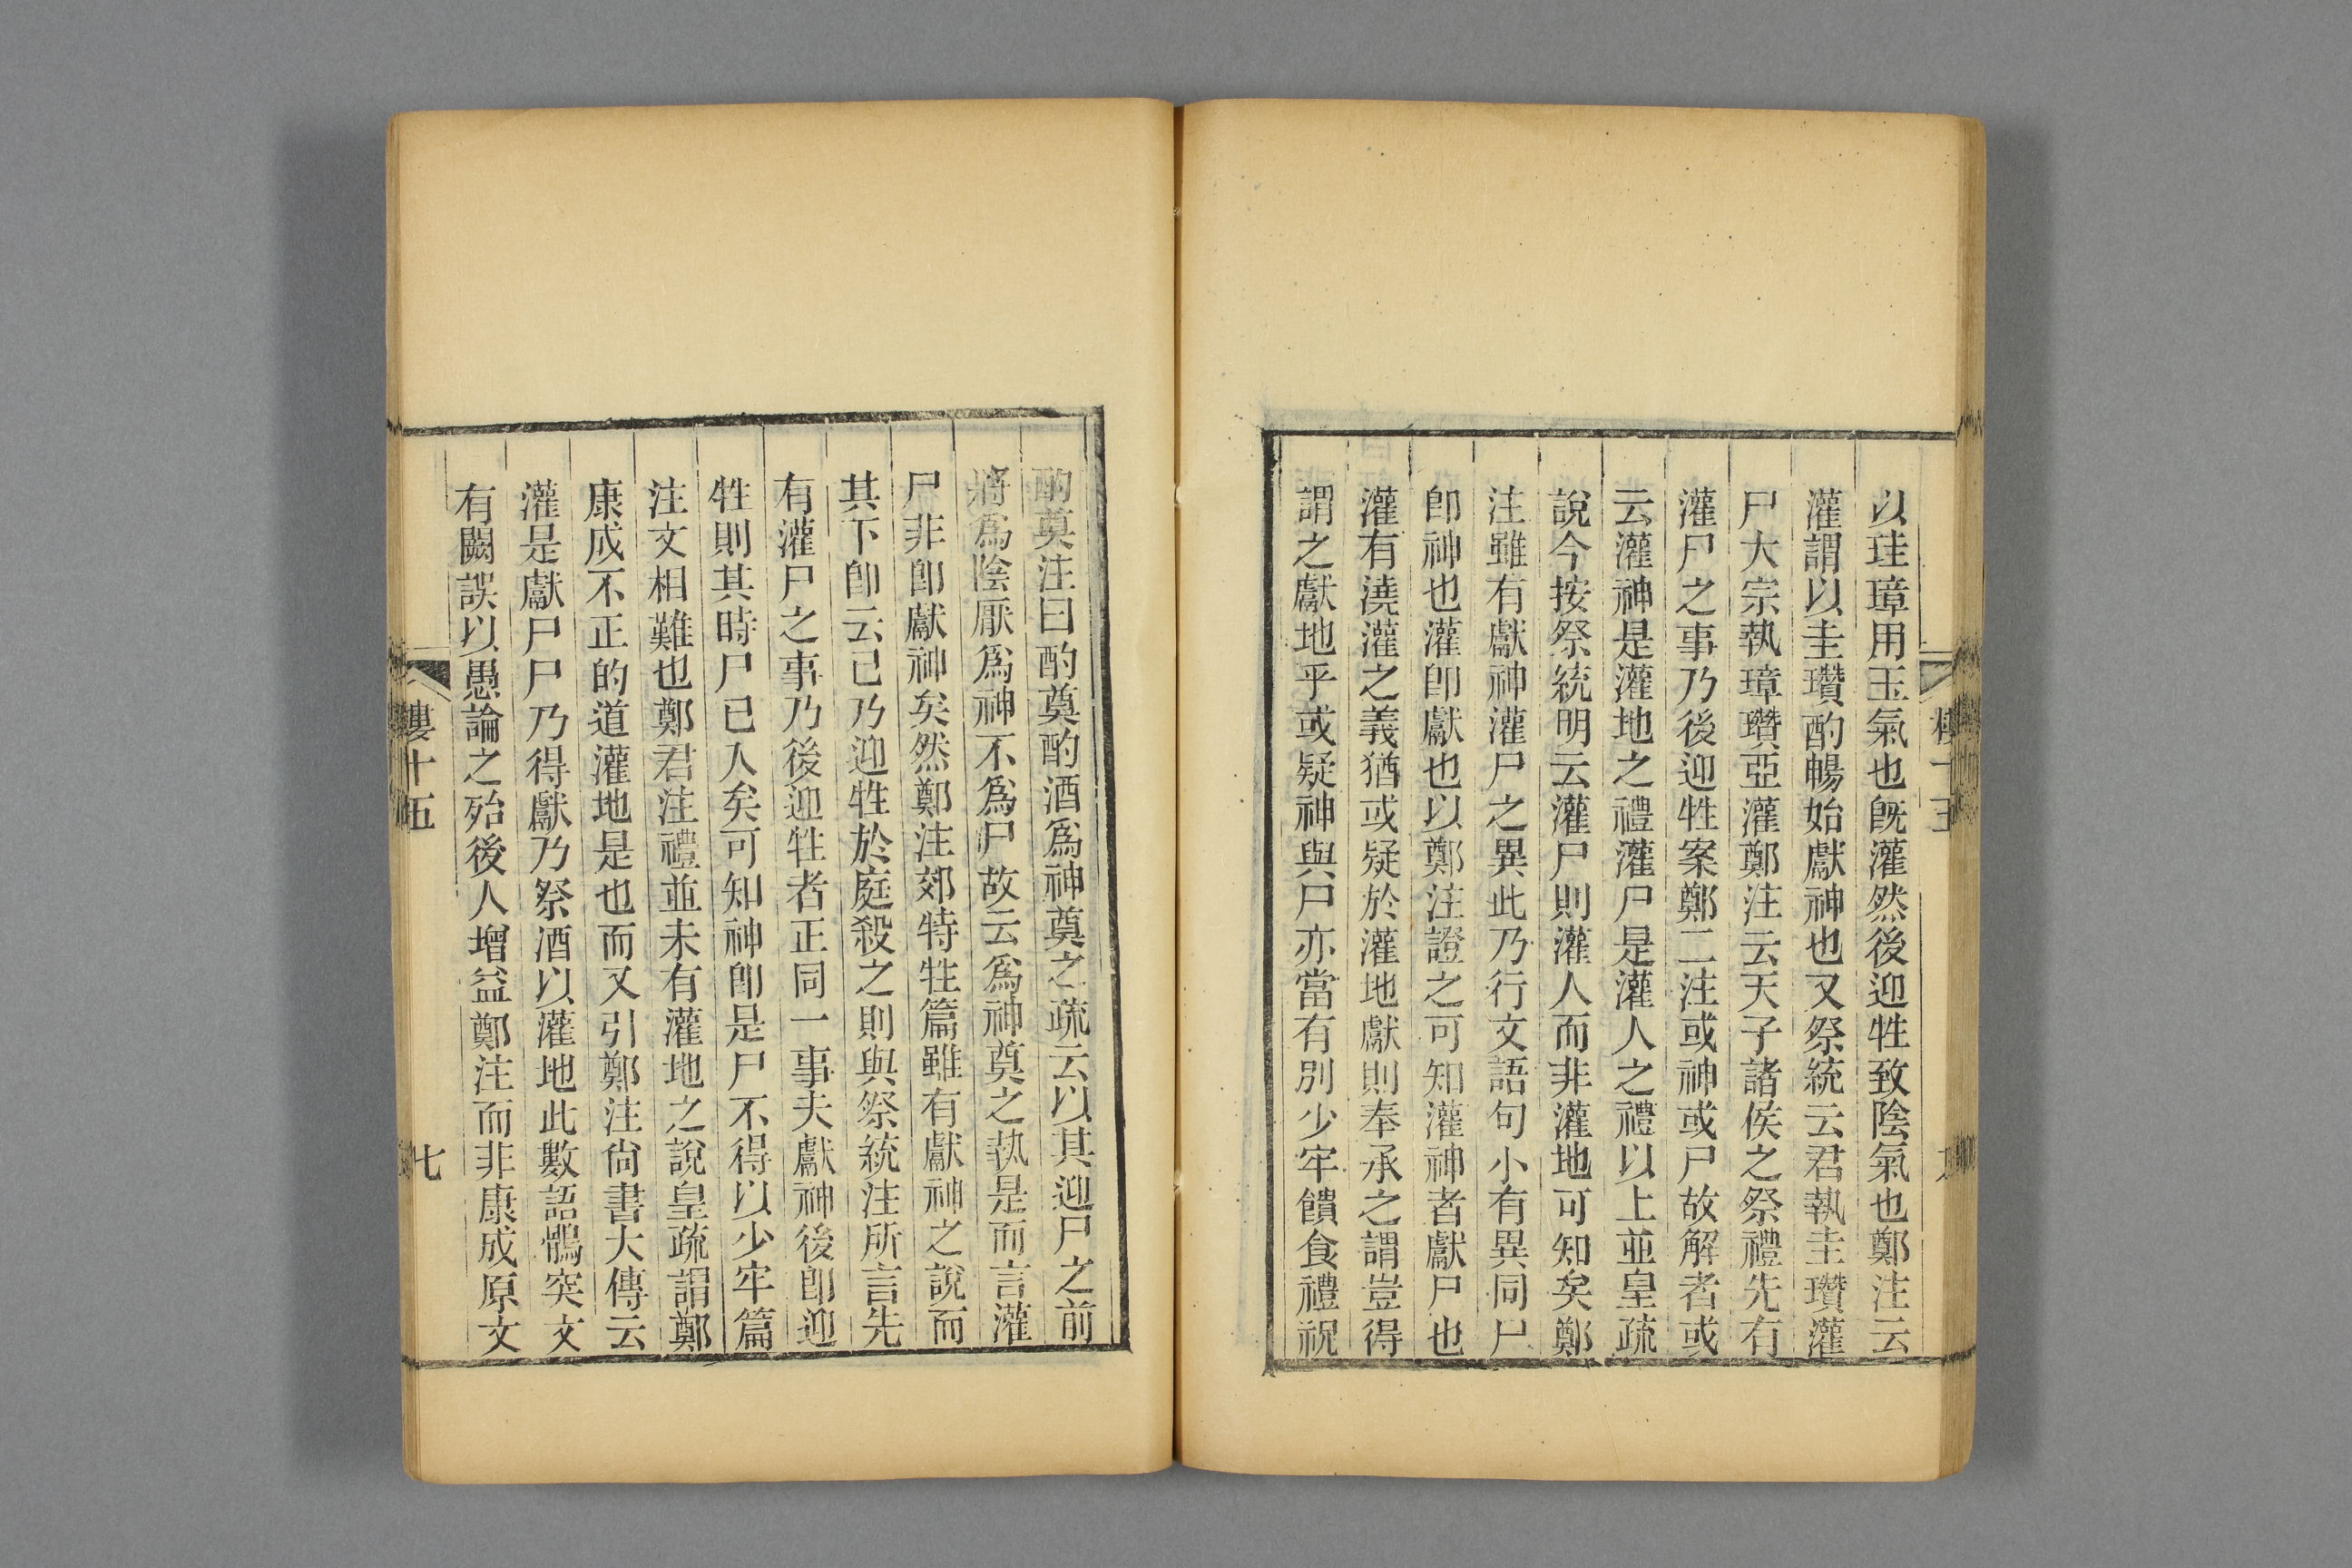 以珪璋用玉氣也旣灌然後迎牲致陰氣也鄭注云
灌謂以圭瓚酌暢始獻神也又祭統云君執圭瓚灌
尸大宗執璋瓚亞灌鄭注云天子諸侯之祭禮先有
灌尸之事乃後迎牲案鄭二注或神或尸故解者或
云灌神是灌地之禮灌尸是灌人之禮以上並皇疏
說今按祭統明云灌尸則灌人而非灌地可知矣鄭
注雖有獻神灌尸之異此乃行文語句小有異同尸
卽神也灌卽獻也以鄭注證之可知灌神者獻尸也
灌有澆灌之義猶或疑於灌地獻則奉承之謂豈得
謂之獻地乎或疑神與尸亦當有別少牢饋食禮祝
酌奠注曰酌奠酌酒爲神奠之疏云以其迎尸之前
將爲陰厭爲神不爲尸故云爲神奠之執是而言灌
尸非卽獻神矣然鄭注郊特牲篇雖有獻神之說而
其下卽云已乃迎牲於庭殺之則與祭統注所言先
有灌尸之事乃後迎牲者正同一事夫獻神後卽迎
牲則其時尸已入矣可知神卽是尸不得以少牢篇
注文相難也鄭君注禮並未有灌地之說皇疏謂鄭
康成不正的道灌地是也而又引鄭注尙書大傳云
灌是獻尸尸乃得獻乃祭酒以灌地此數語鶻突文
有闕誤以愚論之殆後人增益鄭注而非康成原文
樓十五
七